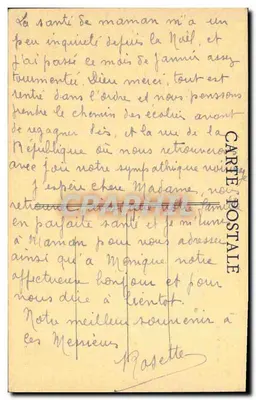 La santé de maman m'a un
peu inquiété depuis la Noël, et
j'ai passé le mois de Janvier assez
tourmentée. Dieu merci, tout est
rentré dans l'ordre et nous pensons
prendre le chemin des écoliers avant
de regagner et la rue de la
République où nous retrouverons
avec joie notre sympathique voisinage
J'espère chère Madame, nous
en parfaite santé et je m'unis
à Maman pour vous adresser
ainsi qu'à Monique notre
affectueux bonjour et pour
vous dire à bientôt.
Notre meilleur souvenir à
ces Messieurs
Rosette
CARTE POSTALE
CPARAMA